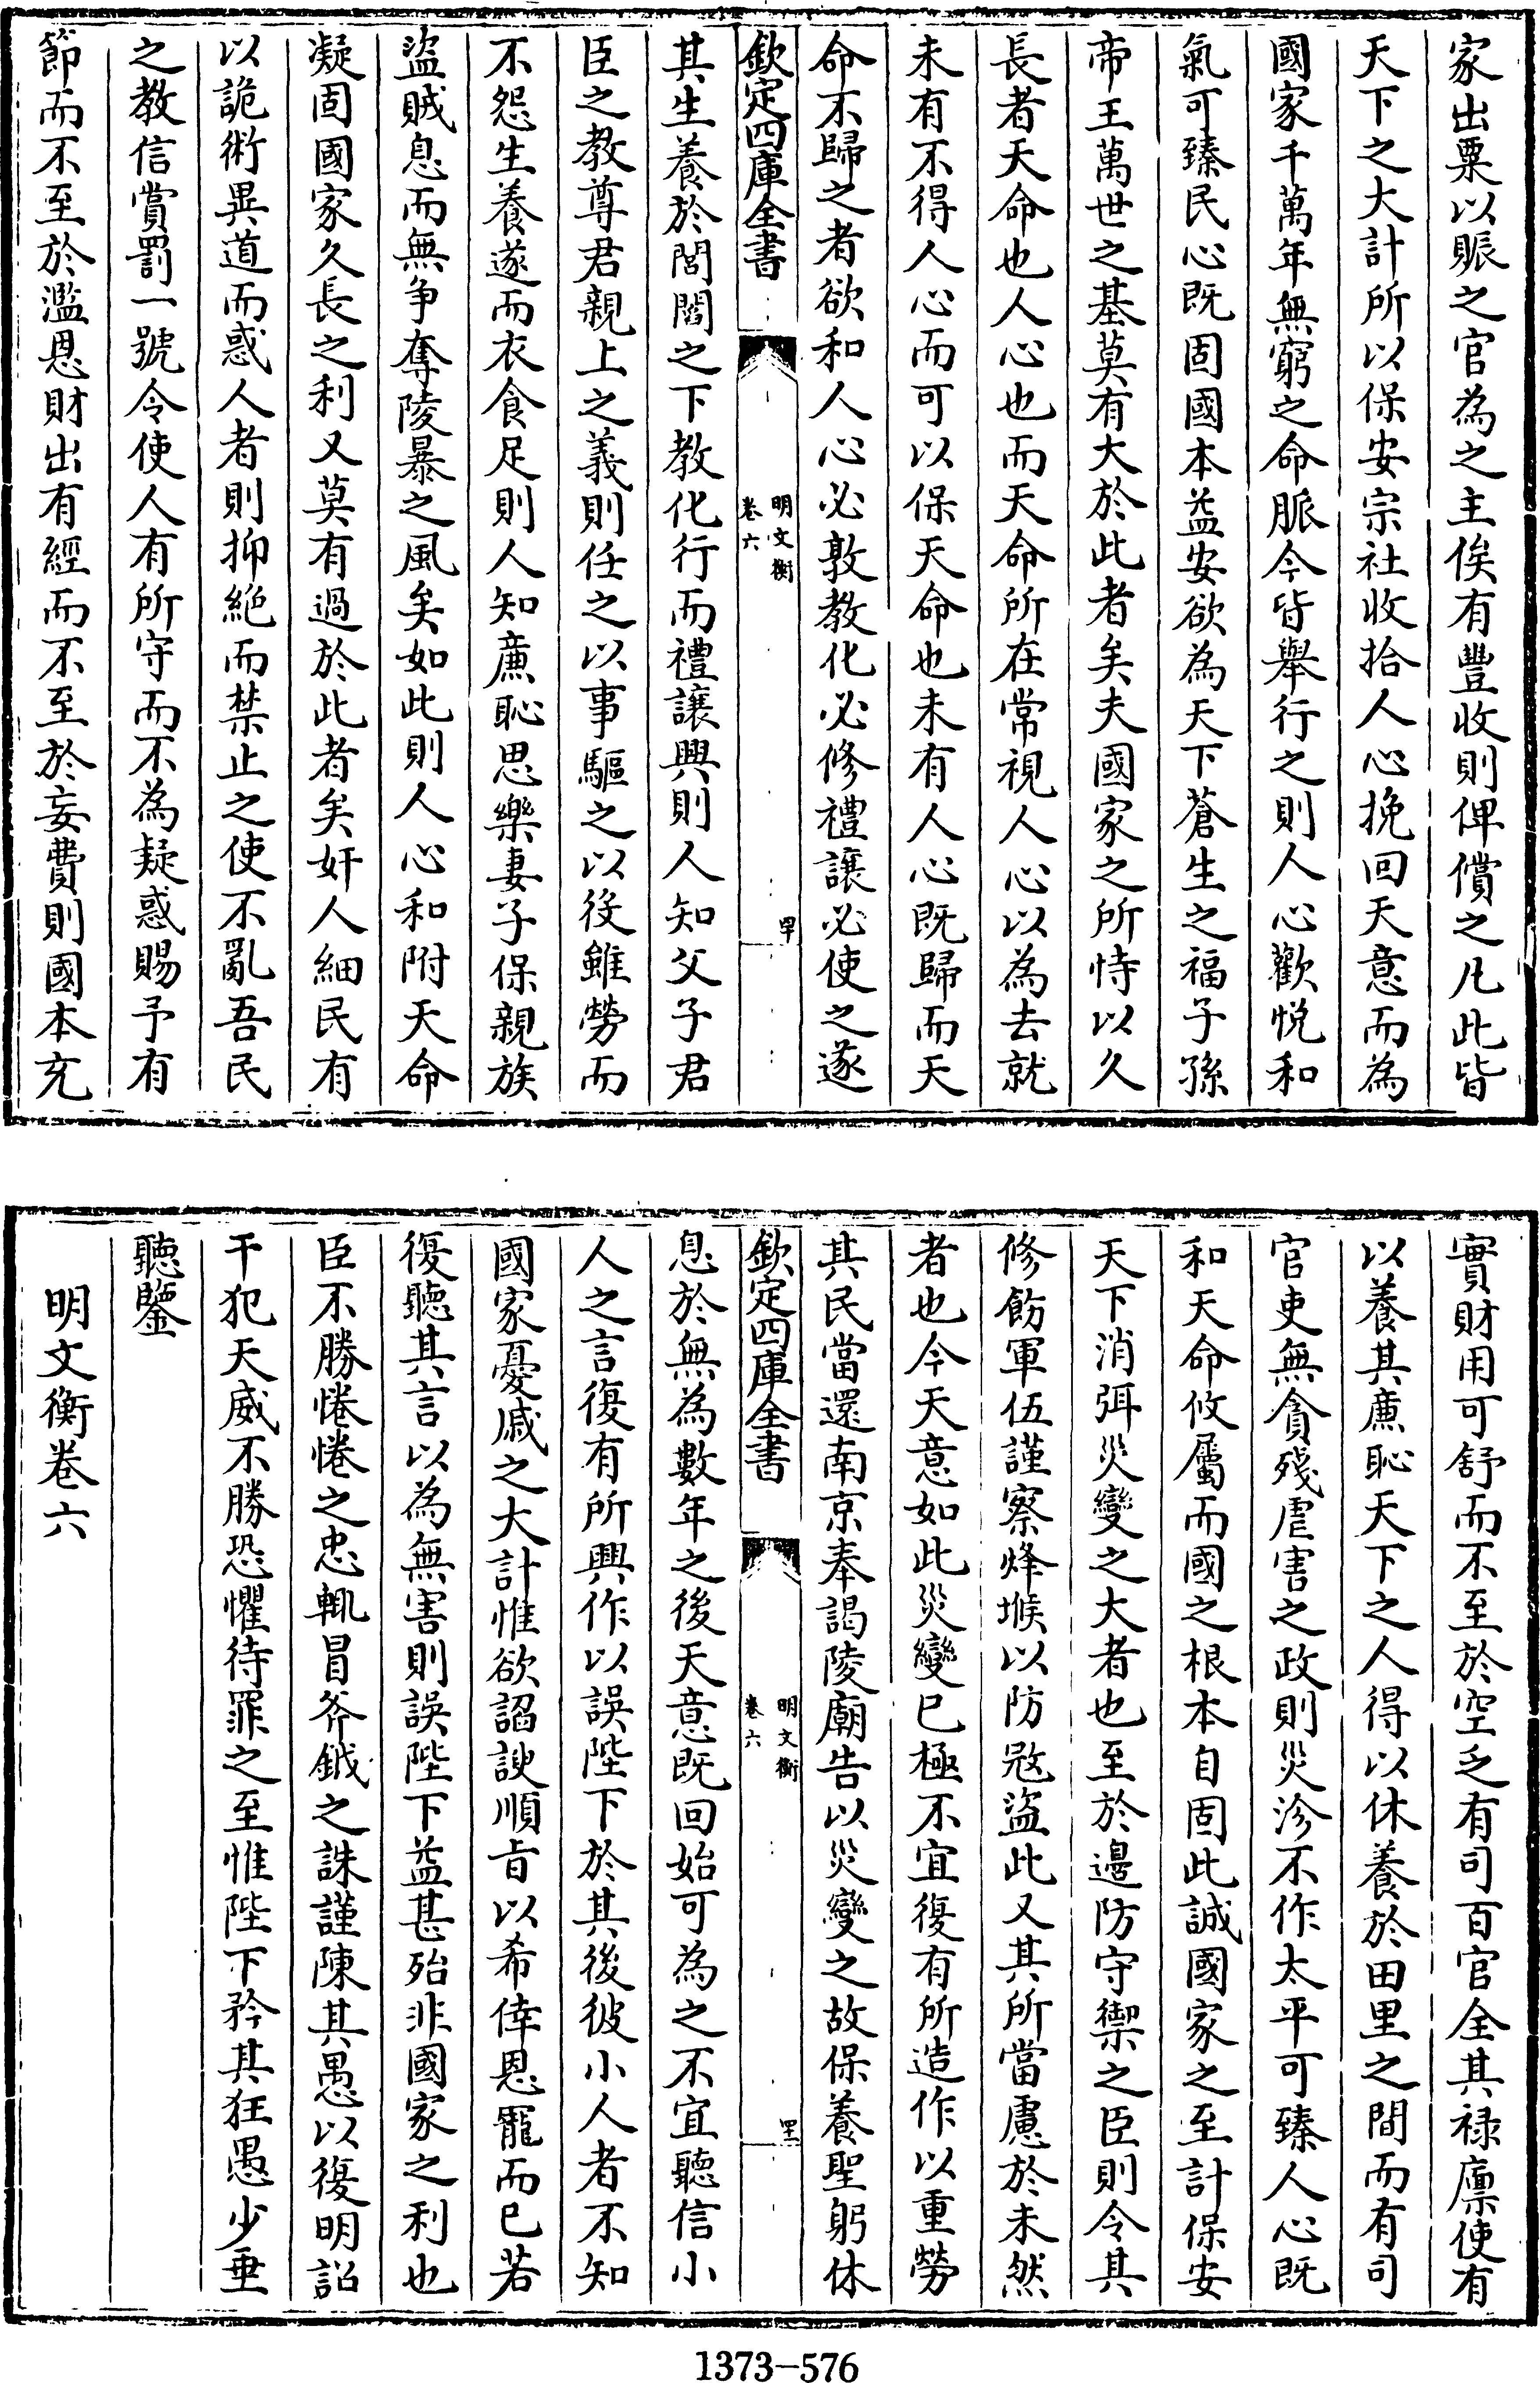 家出粟以賑之官為之主俟有豐收則俾償之凡此皆
天下之大計所以保安宗社收拾人心挽回天意而為
國家千萬年無窮之命脈今皆舉行之則人心歡悅和
氣可臻民心既固國本益安欲為天下蒼生之福子孫
帝王萬世之基莫有大於此者矣夫國家之所恃以久
長者天命也人心也而天命所在常視人心以為去就
未有不得人心而可以保天命也未有人心既歸而天
命不歸之者欲和人心必敦教化必修禮讓必使之遂
欽定四庫全書
明文衡
卷六
罕
其生養於閭閻之下教化行而禮讓興則人知父子君
臣之教尊君親上之義則任之以事驅之以役雖勞而
不怨生養遂而衣食足則人知亷恥思樂妻子保親族
盜賊息而無争奪陵暴之風矣如此則人心和附天命
凝固國家久長之利又莫有過於此者矣奸人細民有
以詭術異道而惑人者則抑絶而禁止之使不亂吾民
之教信賞罰一號令使人有所守而不為疑惑賜予有
節而不至於濫恩財出有經而不至於妄費則國本充
實財用可舒而不至於空乏有司百官全其禄廪使有
以養其亷恥天下之人得以休養於田里之間而有司
官吏無貪殘虐害之政則災沴不作太平可臻人心既
和天命攸屬而國之根本自固此誠國家之至計保安
天下消弭災變之大者也至於邊防守禦之臣則令其
修飭軍伍謹察烽堠以防冦盜此又其所當慮於未然
者也今天意如此災變已極不宜復有所造作以重勞
其民當還南京奉謁陵廟告以災變之故保養聖躬休
欽定四庫全書
明文衡
卷六
罒
息於無為數年之後天意既回始可為之不宜聽信小
人之言復有所興作以誤陛下於其後彼小人者不知
國家憂戚之大計惟欲謟諛順㫖以希倖恩寵而已若
復聽其言以為無害則誤陛下益甚殆非國家之利也
臣不勝惓惓之忠輒冒斧鉞之誅謹陳其愚以復明詔
干犯天威不勝恐懼待罪之至惟陛下矜其狂愚少垂
聽鑒
明文衡卷六
1373-576